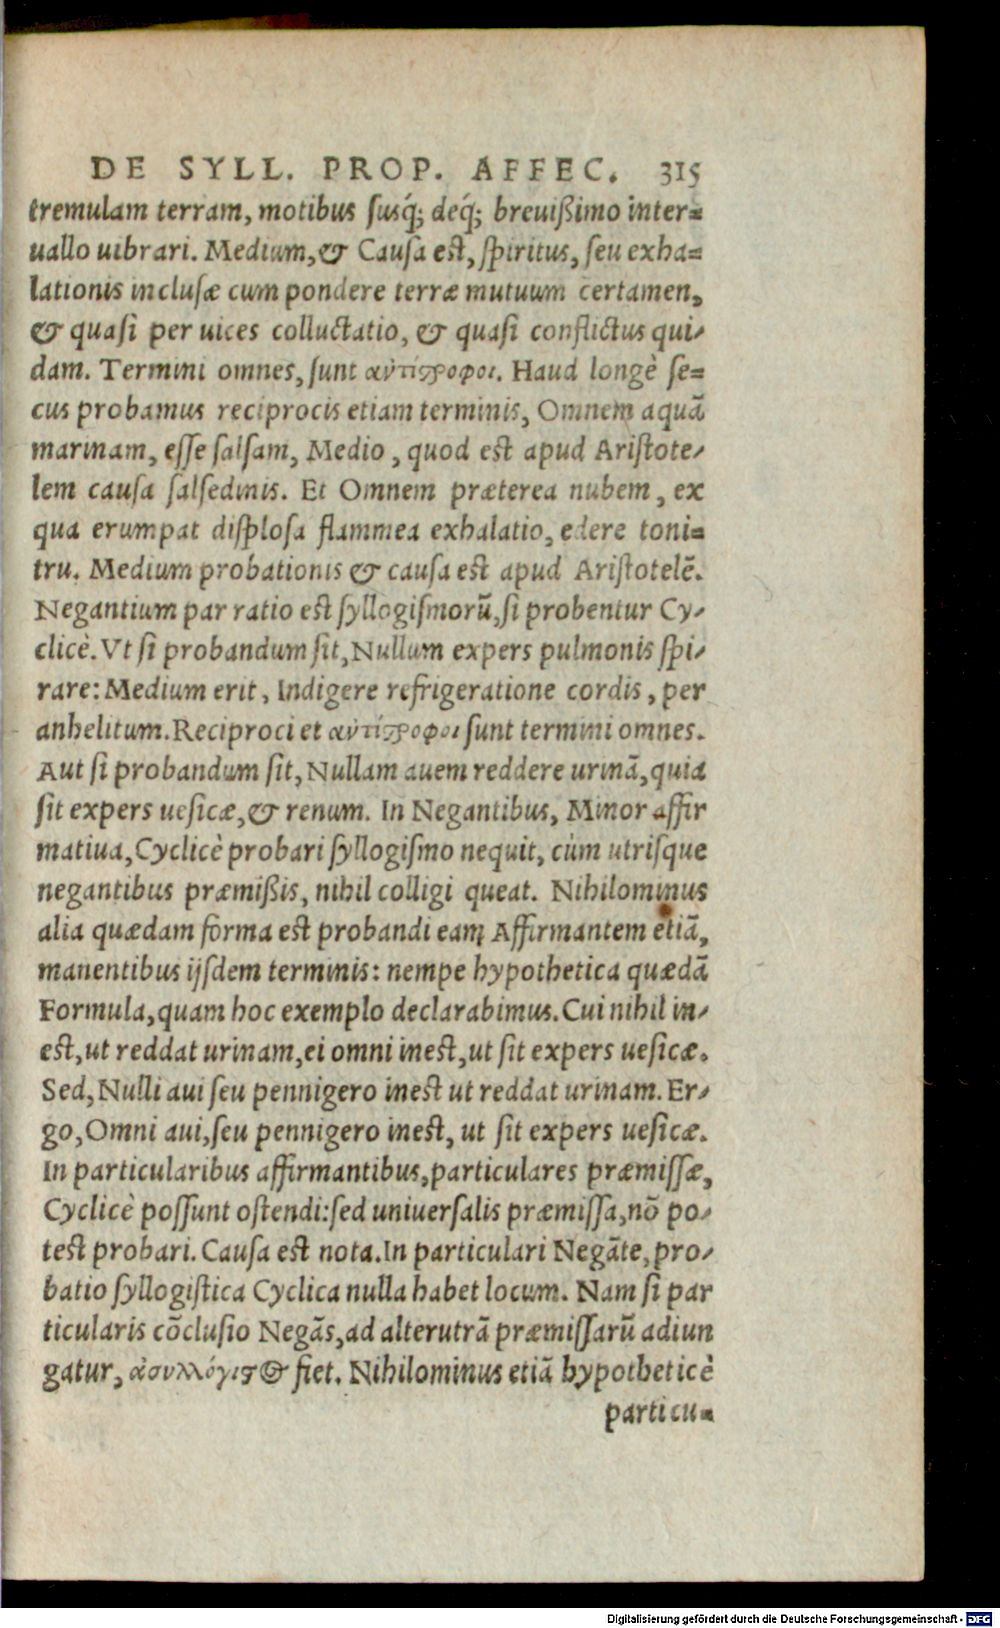 DE SYLL. PROP. AFFEC. 315
tremulam terram, motibus susq́; deq́; breuißimo inter=
uallo uibrari. Medium, & Causa est, spiritus, seu exha=
lationis inclusæ cum pondere terræ mutuum certamen,
& quasi per uices colluctatio, & quasi conflictus qui-
dam. Termini omnes, sunt ἀντίστροφοι. Haud longè se=
cus probamus reciprocis etiam terminis, Omnem aquā
marinam, esse salsam, Medio, quod est apud Aristote-
lem causa salsedinis. Et Omnem præterea nubem, ex
qua erumpat displosa flammea exhalatio, edere toni=
tru. Medium probationis & causa est apud Aristotelē.
Negantium par ratio est syllogismorū, si probentur Cy-
clicè. Vt si probandum sit, Nullum expers pulmonis spi-
rare: Medium erit, Indigere refrigeratione cordis, per
anhelitum. Reciproci et ἀντίστροφοι sunt termini omnes.
Aut si probandum sit, Nullam auem reddere urinā, quia
sit expers uesicæ, & renum. In Negantibus, Minor affir
matiua, Cyclicè probari syllogismo nequit, cùm utrisque
negantibus præmißis, nihil colligi queat. Nihilominus
alia quædam forma est probandi eam Affirmantem etiā,
manentibus ijsdem terminis: nempe hypothetica quædā
Formula, quam hoc exemplo declarabimus. Cui nihil in-
est, ut reddat urinam, ei omni inest, ut sit expers uesicæ.
Sed, Nulli aui seu pennigero inest ut reddat urinam. Er-
go, Omni aui, seu pennigero inest, ut sit expers uesicæ.
In particularibus affirmantibus, particulares præmissæ,
Cyclicè possunt ostendi: sed uniuersalis præmissa, nō po-
test probari. Causa est nota. In particulari Negāte, pro-
batio syllogistica Cyclica nulla habet locum. Nam si par
ticularis cōclusio Negās, ad alterutrā præmissarū adiun
gatur, ἀσυλλόγιστος fiet. Nihilominus etiā hypotheticè
particu=
Digitalisierung gefördert durch die Deutsche Forschungsgemeinschaft - DFG